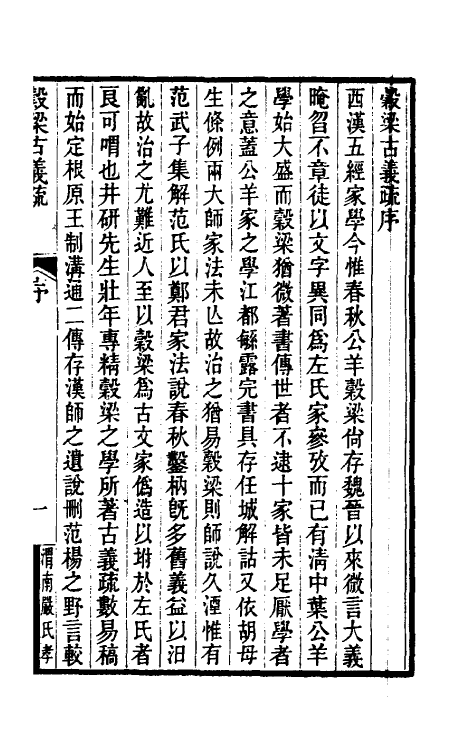 穀梁古義疏序
西漢五經家學今惟春秋公羊穀梁尙存魏晉以來微言大義
晻曶不章徒以文字異同爲左氏家參攷而已有淸中葉公羊
學始大盛而穀梁猶微著書傳世者不逮十家皆未足厭學者
之意蓋公羊家之學江都緐露完書具存任城解詁又依胡母
生條例兩大師家法未亾故治之猶易穀梁則師說久湮惟有
范武子集解范氏以鄭君家法說春秋鑿枘旣多舊義益以汨
亂故治之尤難近人至以穀梁爲古文家僞造以坿於左氏者
良可喟也井研先生壯年專精穀梁之學所著古義疏數易稿
而始定根原王制溝通二傳存漢師之遺說刪范楊之野言較
穀梁古義疏
序
一
渭南嚴氏孝